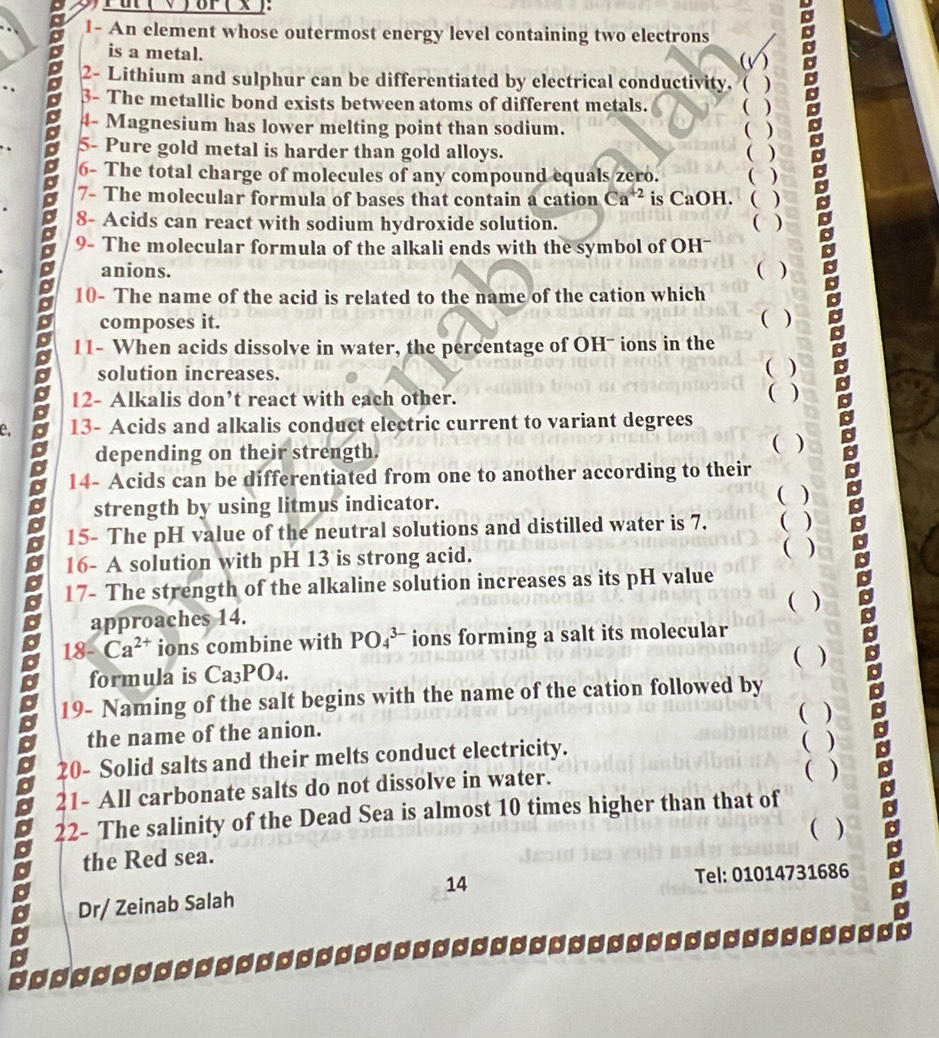 Put ( √ ) or ( x ):
1- An element whose outermost energy level containing two electrons
is a metal. (√)
2- Lithium and sulphur can be differentiated by electrical conductivity. ( )
3- The metallic bond exists between atoms of different metals. ( )
4- Magnesium has lower melting point than sodium. ( )
5- Pure gold metal is harder than gold alloys. ( )
6- The total charge of molecules of any compound equals zero. ( )
7- The molecular formula of bases that contain a cation Ca⁺² is CaOH. ( )
8- Acids can react with sodium hydroxide solution. ( )
9- The molecular formula of the alkali ends with the symbol of OH⁻
anions. ( )
10- The name of the acid is related to the name of the cation which
composes it. ( )
11- When acids dissolve in water, the percentage of OH⁻ ions in the
solution increases. ( )
12- Alkalis don't react with each other. ( )
13- Acids and alkalis conduct electric current to variant degrees
depending on their strength. ( )
14- Acids can be differentiated from one to another according to their
strength by using litmus indicator. ( )
15- The pH value of the neutral solutions and distilled water is 7. ( )
16- A solution with pH 13 is strong acid. ( )
17- The strength of the alkaline solution increases as its pH value
approaches 14. ( )
18- Ca²⁺ ions combine with PO₄³⁻ ions forming a salt its molecular
formula is Ca₃PO₄. ( )
19- Naming of the salt begins with the name of the cation followed by
the name of the anion. ( )
20- Solid salts and their melts conduct electricity. ( )
21- All carbonate salts do not dissolve in water. ( )
22- The salinity of the Dead Sea is almost 10 times higher than that of
the Red sea. ( )
Dr/ Zeinab Salah
14
Tel: 01014731686
Dr/ Zeinab Salah
e.